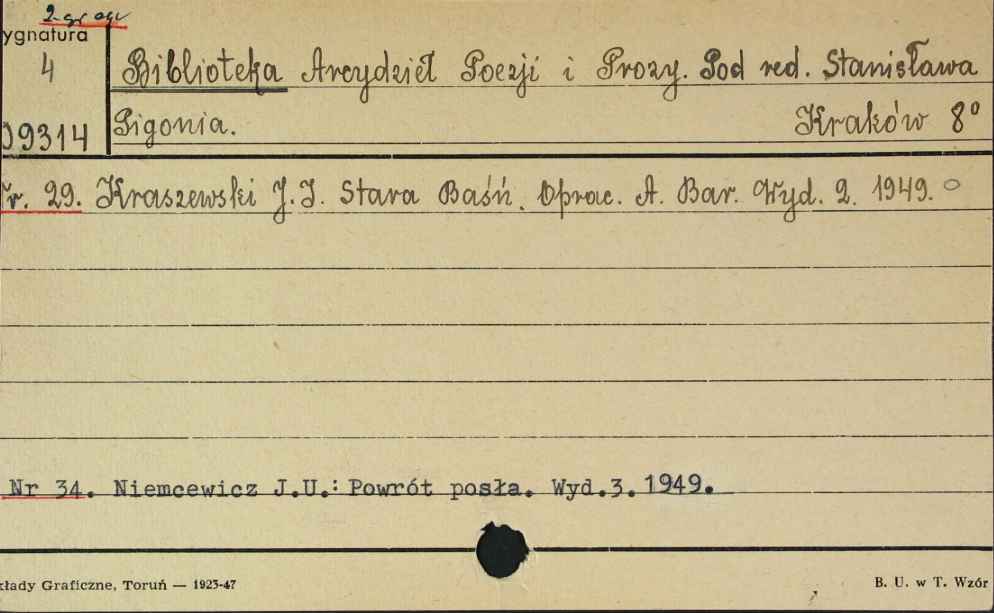 ygnatura
4
09314
Biblioteka Arcydzieł Poezji i Prozy. Pod red. Stanisława
Pigonia. Kraków 8°
Nr. 29. Kraszewski J.I. Stara Baśń. Oprac. A. Bar. Wyd. 2. 1949.
Nr 34. Niemcewicz J.U.: Powrót posła. Wyd.3. 1949.
kłady Graficzne, Toruń — 1923-47
B. U. w T. Wzór